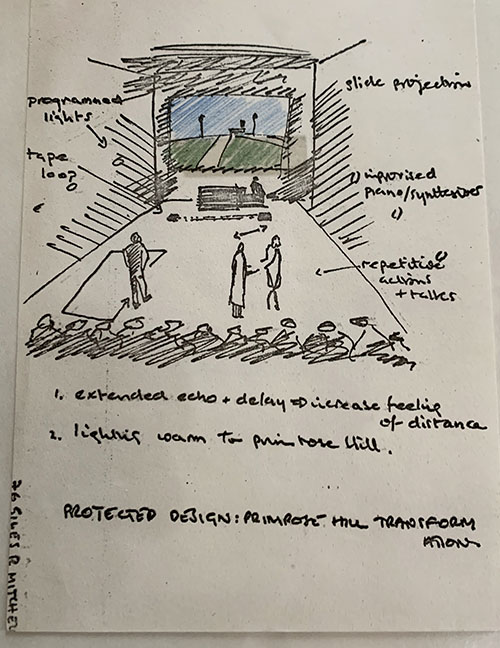 programmed
lights
tape
loop
slide projection
improvised
piano/synthesizer
repetitive
actions
+ talks
1. extended echo + delay ⇒ increase feeling
of distance
2. lighting warm to primrose Hill.
PROTECTED DESIGN: PRIMROSE HILL TRANSFORM
ATIONS
76 GILES R MITCHEL